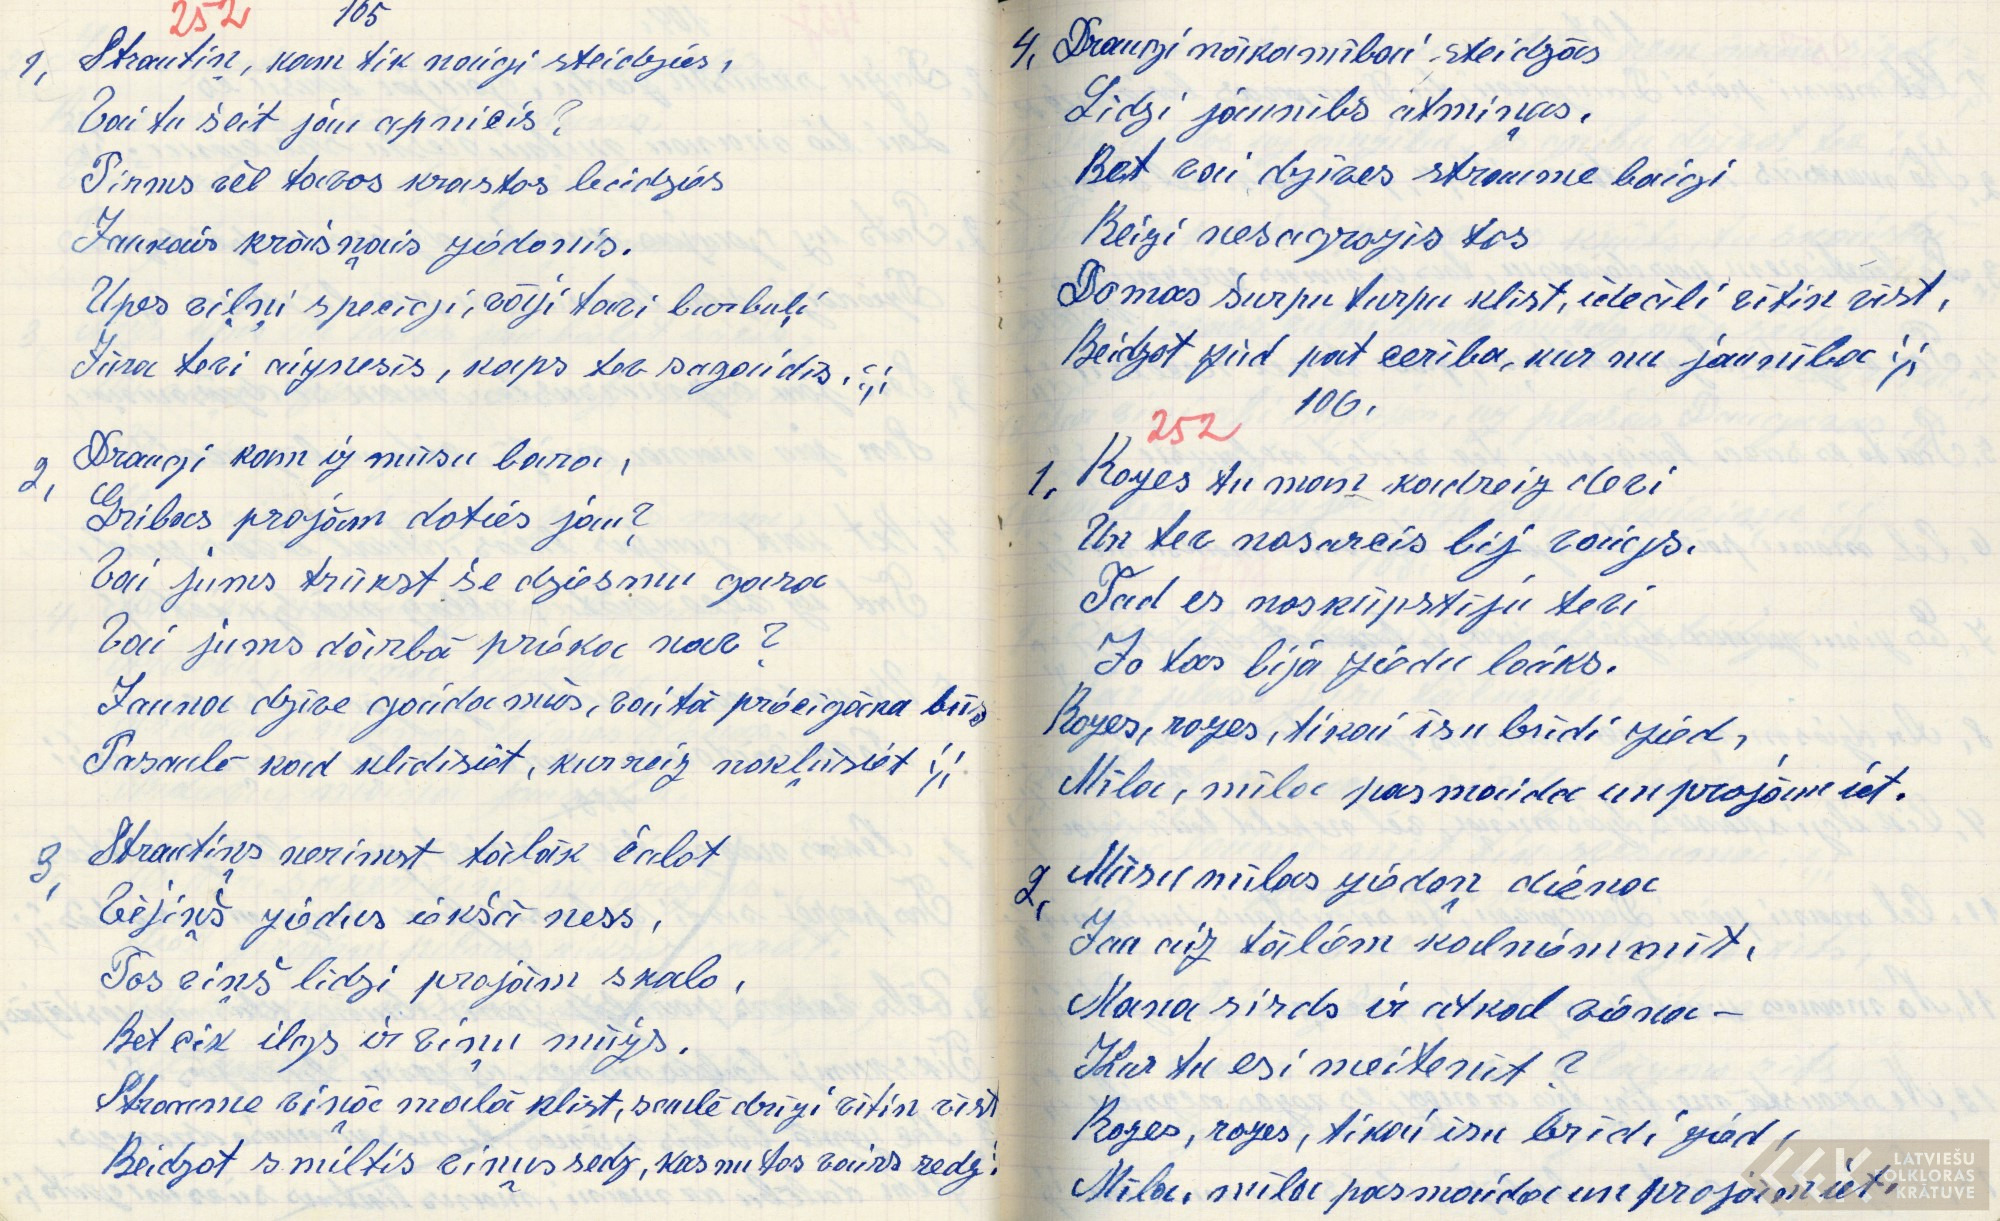 252 105
1, Strautiņ, kam tik naigi steidzies,
Vai tu šeit jau apnicis?
Pirms vēl tavos krastos beidzās
Jaukais krāšņais ziedonis.
Upes viļņi specīgi, vāji tavi burbuļi
Jūra tevi aiznesīs, kaps tev sagaidīs. :;:
2, Draugi kam iz mūsu bara,
Gribas projām doties jau?
Vai jums trūkst še dziesmu gara
Vai jums dārbā prieka nav?
Jauna dzīve gaida mūs, vai tā priecīgāka būs
Pasaulē kad klīdisiet, kurreiz nokļūsiet :;:
3, Strautiņs nerimst tālāk čalot
Vējiņš ziedus iekšā ness,
Tos viņš līdzi projām skalo,
Bet cik ilgs ir viņu mūžs.
Straume viņā malā klīst, saulē drīzi vītin vīst
Beidzot smiltis viņus sedz, kas nu tos vairs redz :
4, Draugi nākamībai steidzās
Lidzi jaunībs atmiņas.
Bet vai dzīves straume baigi
Beigi nesagrozīs tos
Domas šurpu turpu klīst, ideāli vītin vīst,
Beidzot zūd pat cerība, kur nu jaunība :;:
106.
252
1, Rozes tu man kadreiz devi
Un tev nosarcis bij vaigs.
Tad es noskūpstīju tevi
Jo tas bija ziedu laiks.
Rozes, rozes, tikai īsu brīdi zied,
Mīla, mīla pasmaida un projām iet.
2, Mūsu mīlas ziedoņ diena
Jau aiz tālēm kalniem mīt,
Mana sirds ir atkal viena –
Kur tu esi meitenīt?
Rozes, rozes, tikai īsu brīdi zied,
Mīla, mīla pasmaida un projām iet,
LATVIEŠU
FOLKLORAS
KRĀTUVE